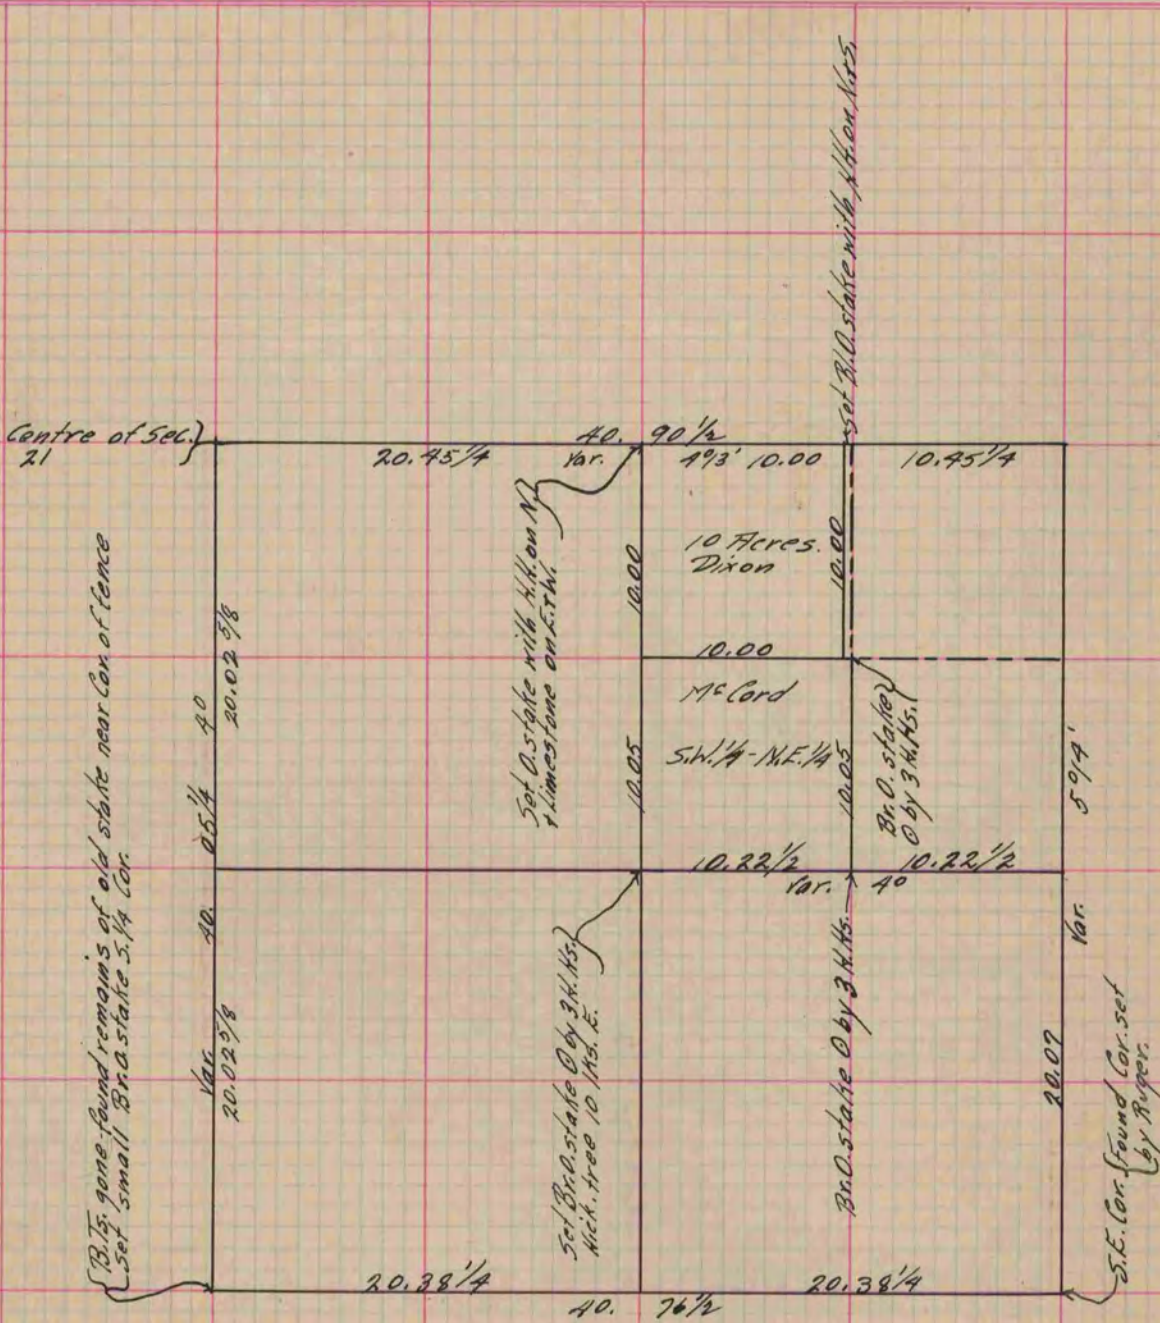 Set B.O. stake with H.H. on N.&S.
Centre of Sec.
21
20.45 1/4
40. 90 1/2
Var. 4°13' 10.00
10.45 1/4
Set O. stake with H.H. on N.
& Limestone on E.&W.
10.00
10 Acres.
Dixon
10.00
10.00
McCord
S.W. 1/4 - N.E. 1/4
10.05
10.05
Br. O. stake
⊙ by 3 H.Hs.
10.22 1/2
10.22 1/2
Var. 4°
5°14'
Var.
20.07
Var. 40. 05 1/4 4°
20.02 5/8
20.02 5/8
B.Ts. gone - found remains of old stake near Cor. of fence
Set small Br. O. stake S. 1/4 Cor.
Set Br. O. stake ⊙ by 3 H.Hs.
Hick. tree 10 lks. E.
Br. O. stake ⊙ by 3 H.Hs.
S.E. Cor. Found Cor. set
by Ruger.
20.38 1/4
20.38 1/4
40. 76 1/2